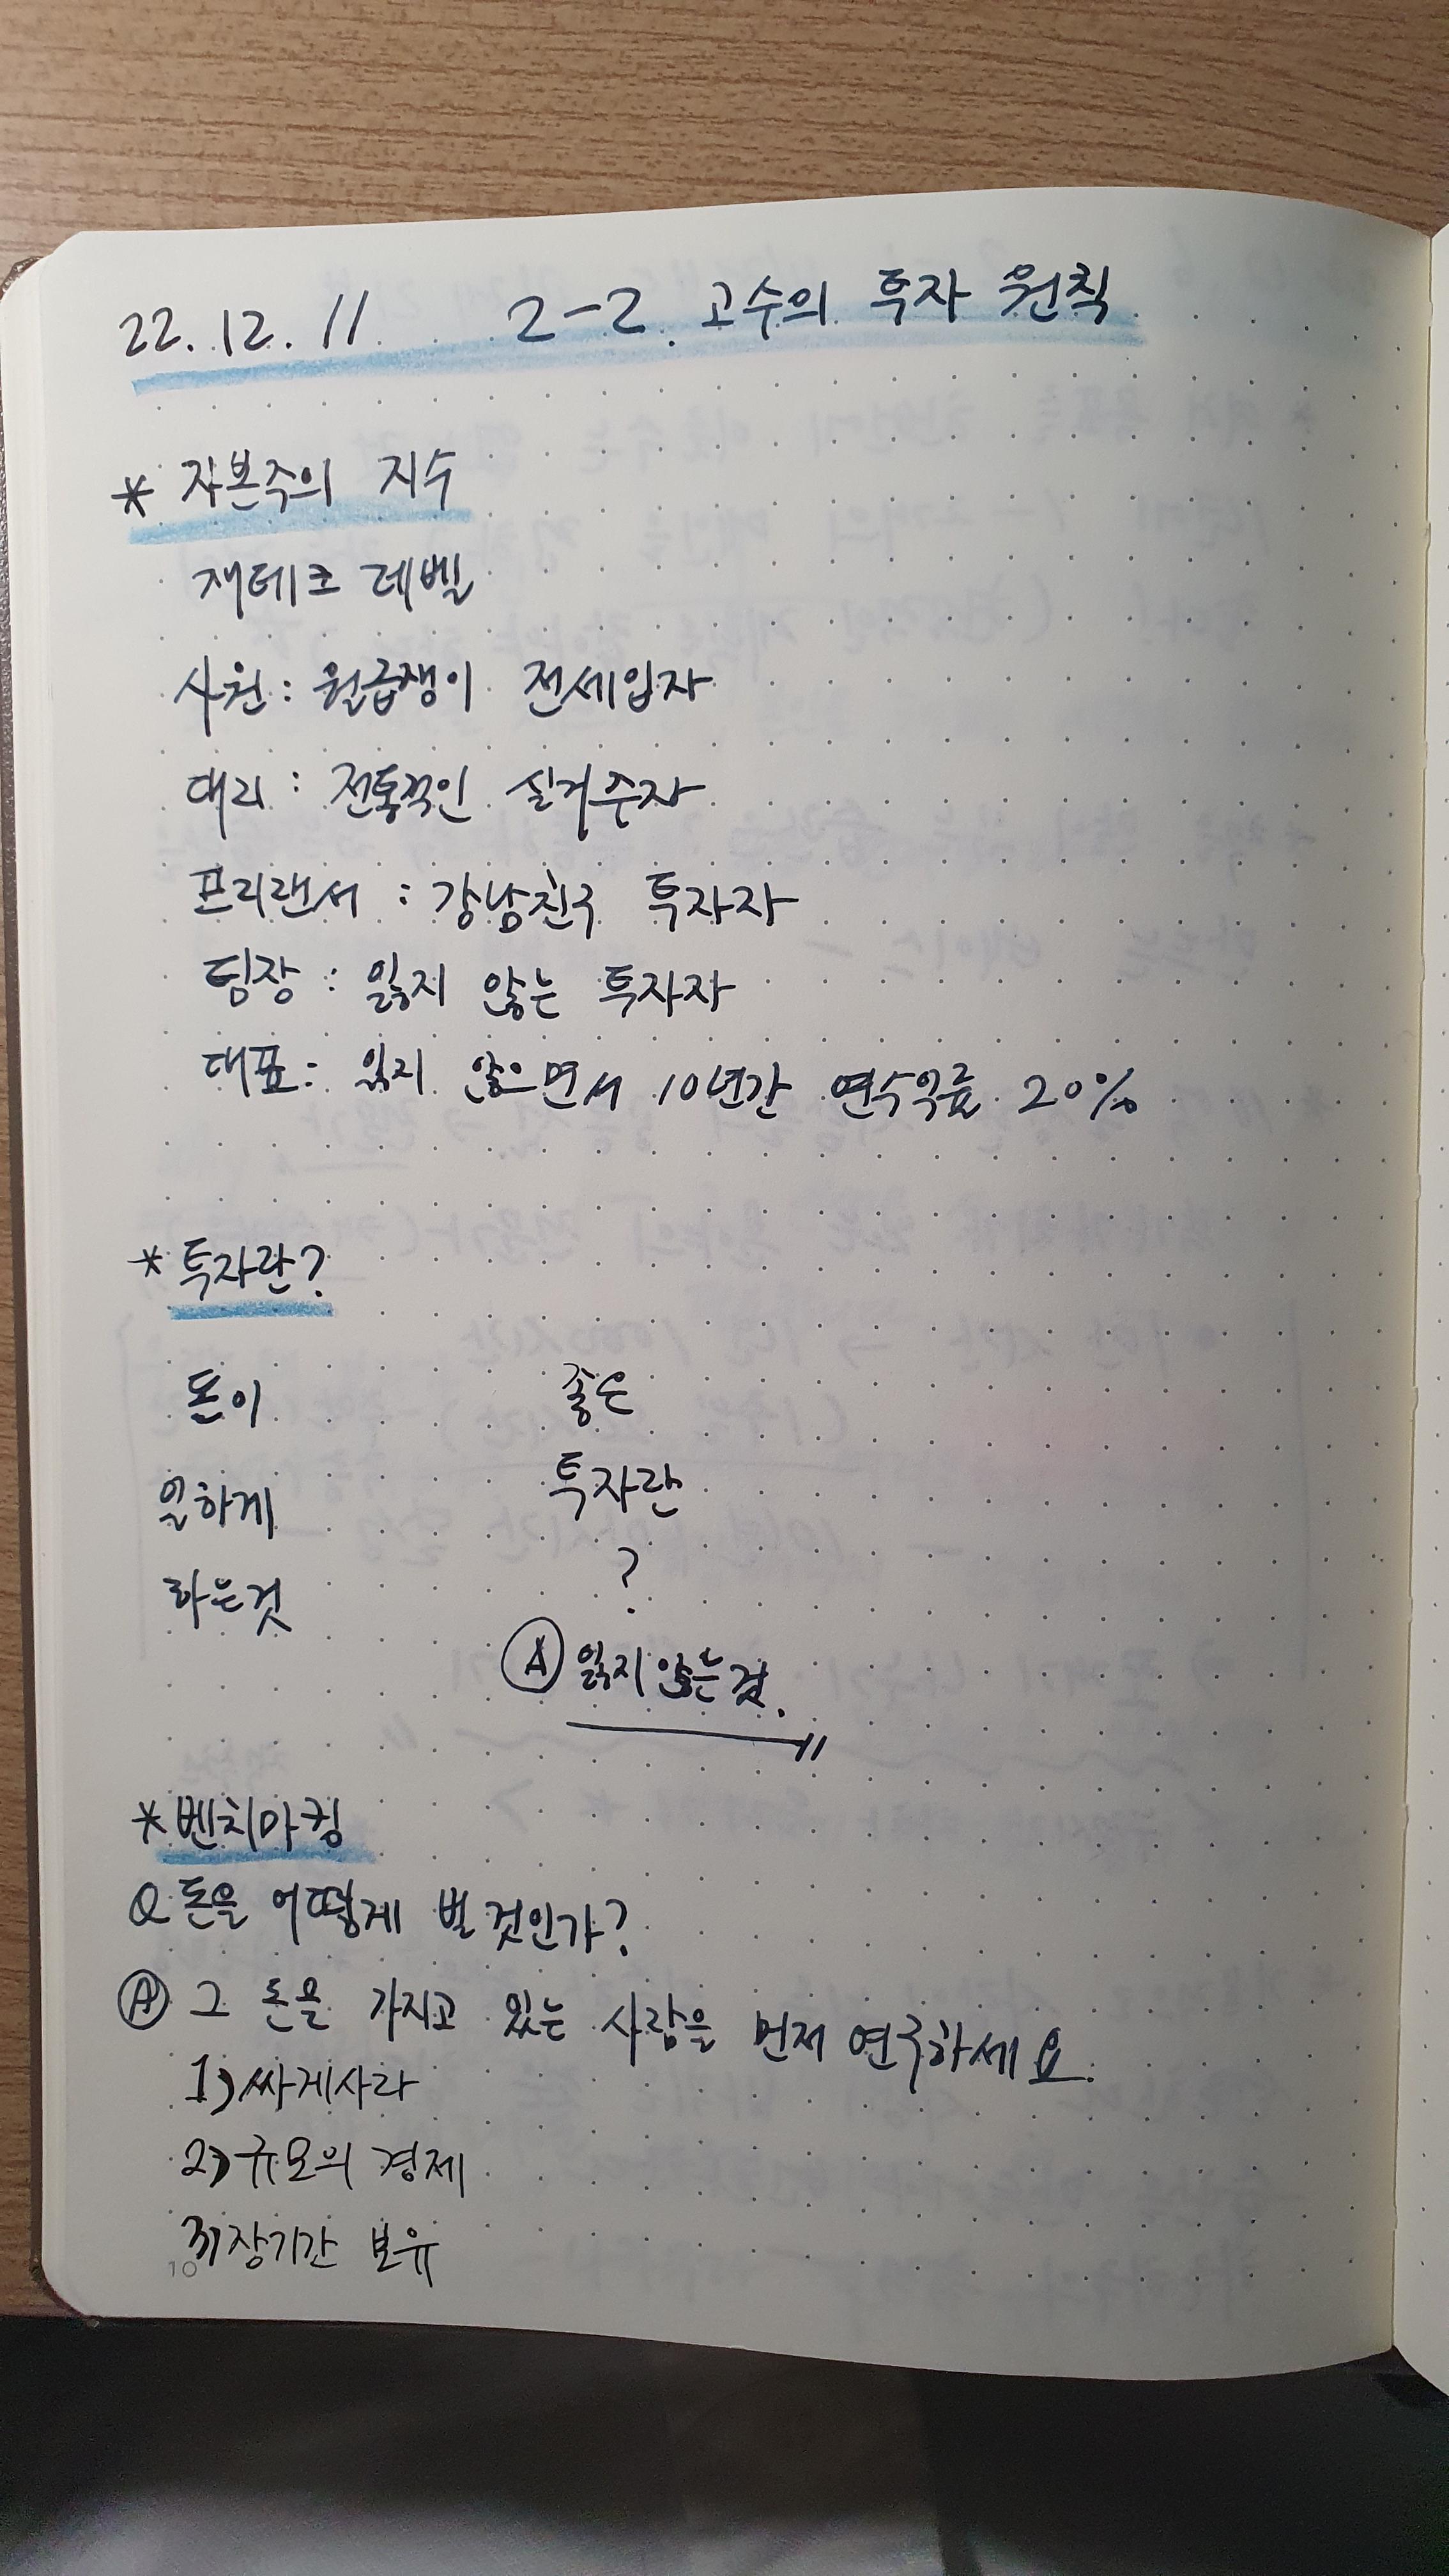 22. 12. 11 2-2. 고수의 투자 원칙
* 자본주의 지수
재테크 레벨
사원 : 월급쟁이 전세입자
대리 : 전통적인 실거주자
프리랜서 : 강남친구 투자자
팀장 : 잃지 않는 투자자
대표 : 잃지 않으면서 10년간 연수익률 20%
* 투자란?
돈이
일하게
하는것
좋은
투자란
?
Ⓐ 잃지 않는 것.
* 벤치마킹
Q 돈을 어떻게 벌 것인가?
Ⓐ 그 돈을 가지고 있는 사람을 먼저 연구하세요.
1) 싸게사라
2) 규모의 경제
3) 장기간 보유
10